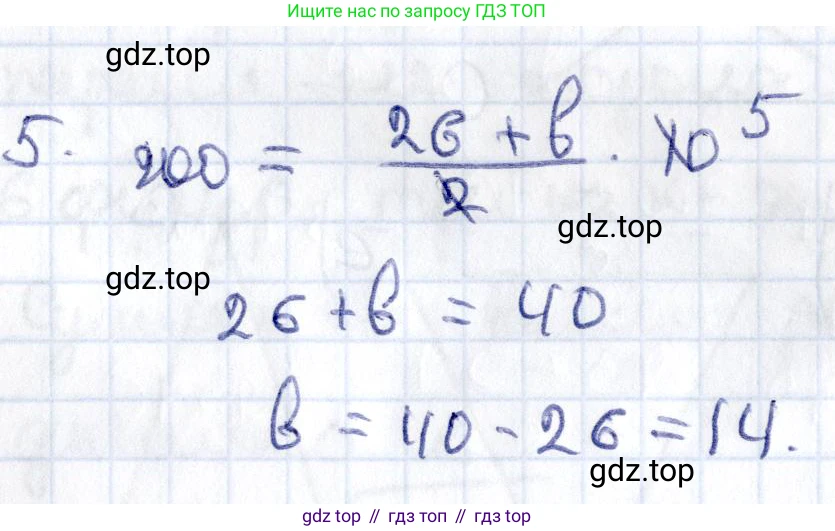 Ищите нас по запросу ГДЗ ТОП
gdz.top
5. 200 = (26 + b)/2 · 10 5
gdz.top
gdz.top
26 + b = 40
b = 40 - 26 = 14.
gdz.top
gdz.top // гдз топ // гдз top